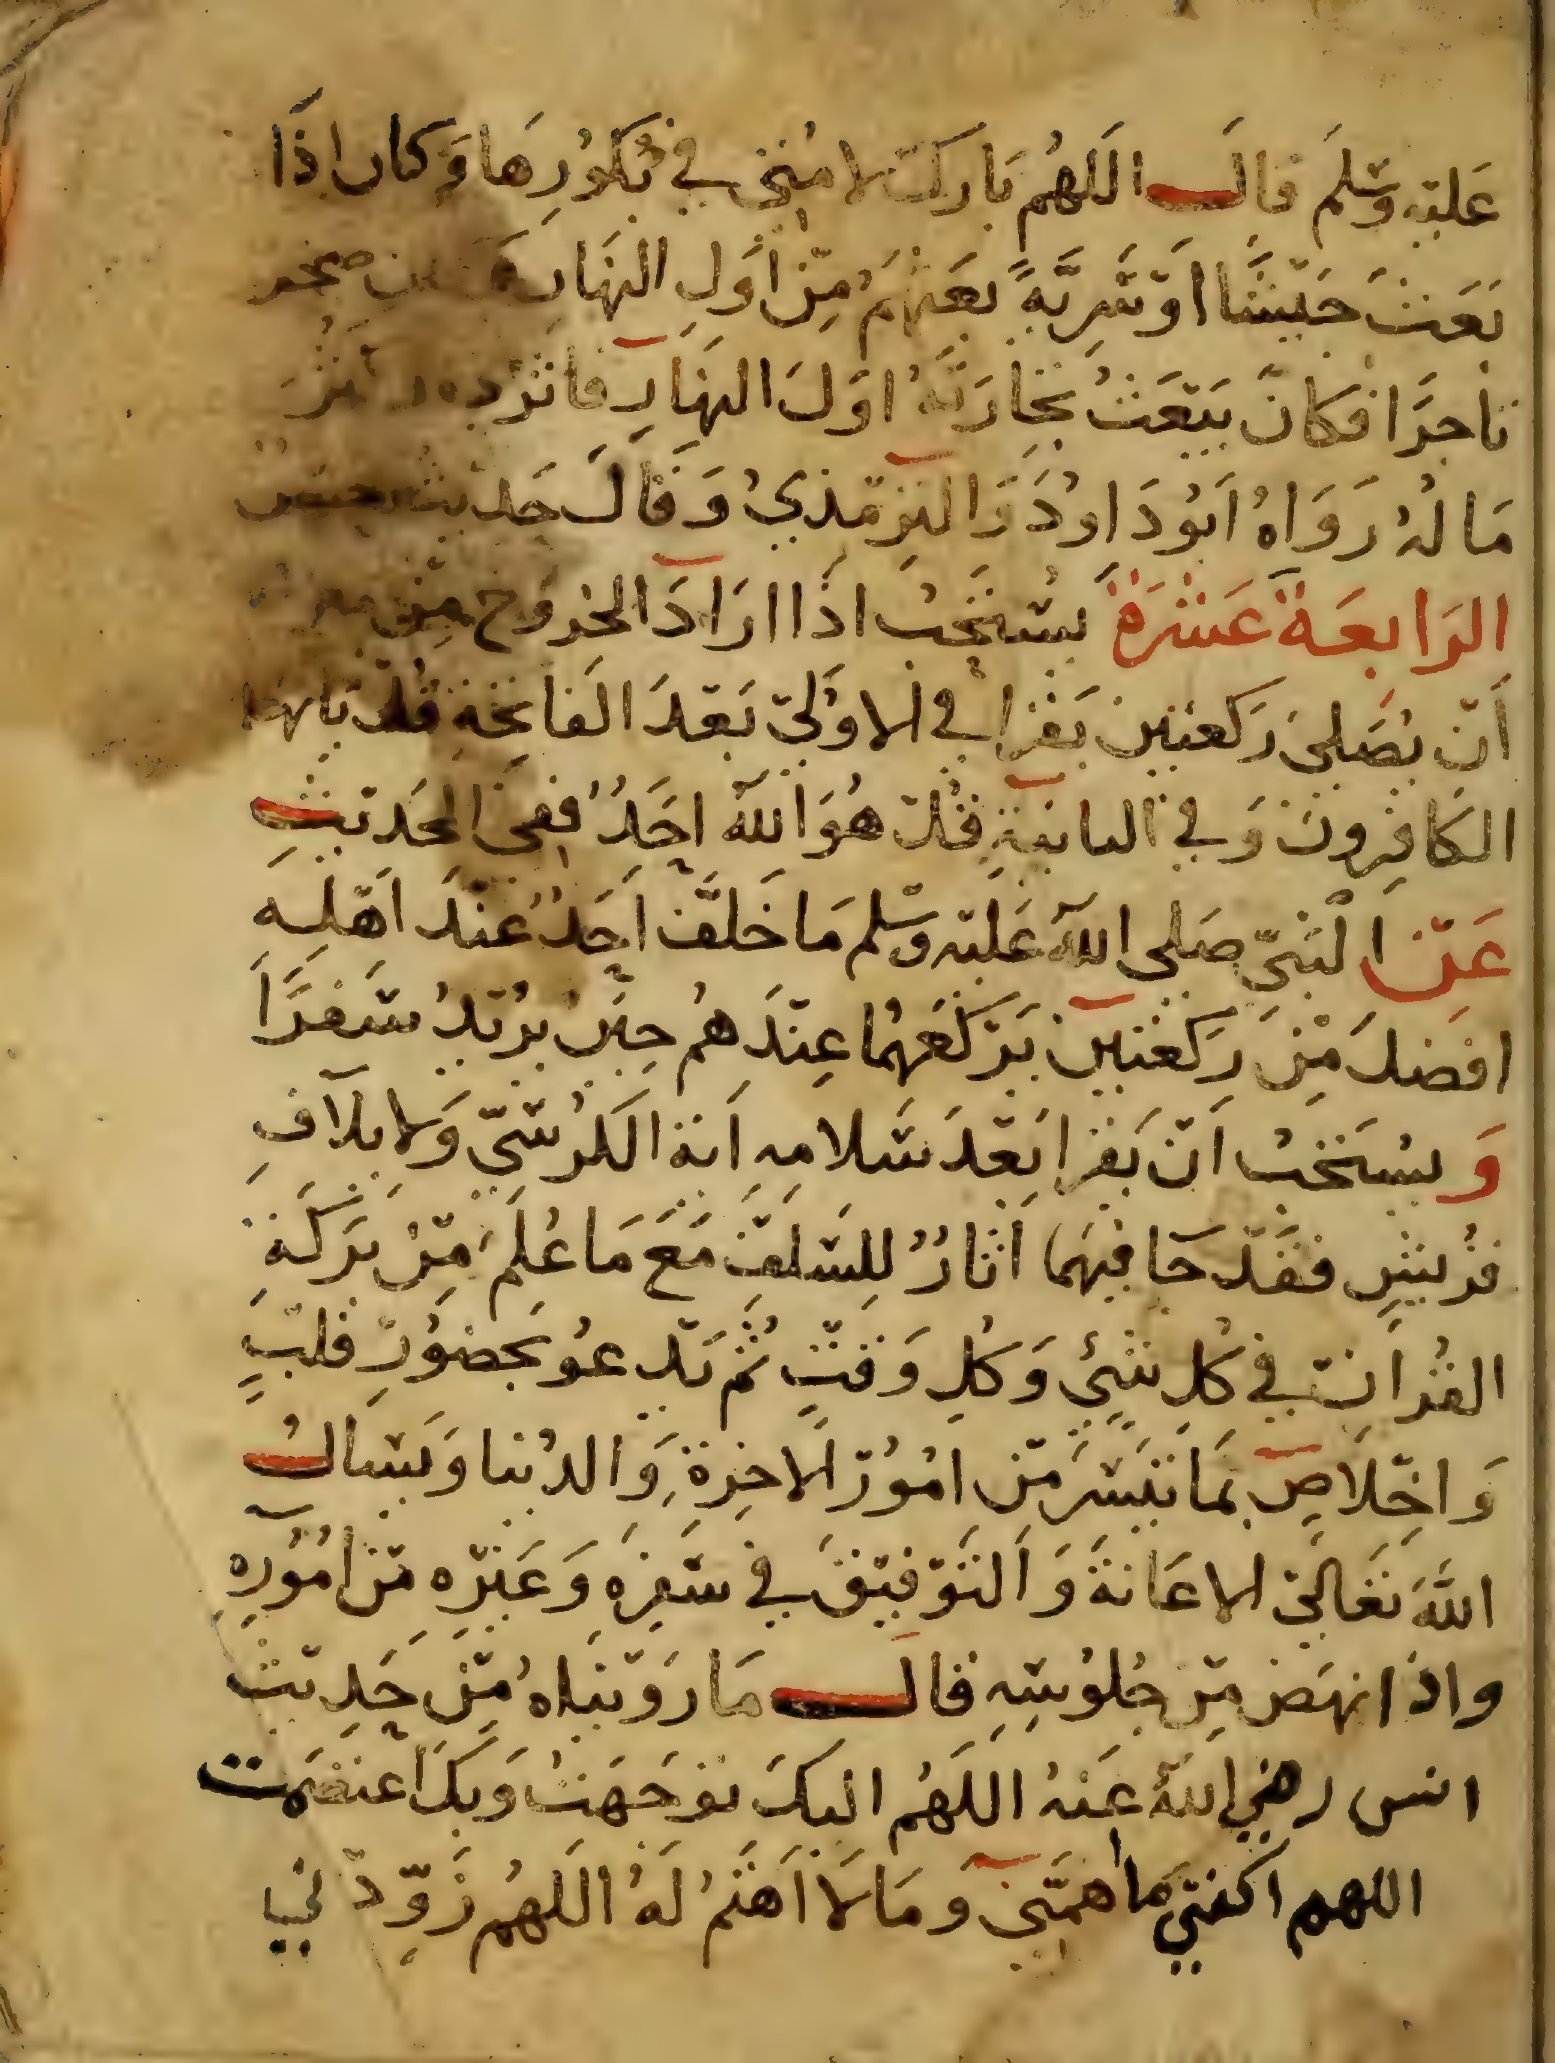 عليه وسلم قال اللهم بارك لامتي في بكورها وكان اذا
بعث جيشا او سرية بعثهم من اول النهار صخر
تاجرا فكان يبعث تجارته اول النهار فاثرى
ماله رواه ابو داود والترمذي وقال حديث حسن
الرابعة عشرة يستحب اذا اراد الخروج من
أن يصلي ركعتين يقرا في الاولى بعد الفاتحة قل يايها
الكافرون وفي الثانية قل هو الله احد ففي الحديث
عن النبي صلى الله عليه وسلم ما خلف احد عند اهله
افضل من ركعتين يركعهما عندهم حين يريد سفرا
ويستحب ان يقرا بعد سلامه اية الكرسي ولايلاف
قريش فقد جا فيهما اثار للسلف مع ما علم من بركة
القران في كل شيء وكل وقت ثم يدعو بحضور قلب
واخلاص بما تيسر من امور الاخرة والدنيا ويسال
الله تعالى الاعانة والتوفيق في سفره وغيره من اموره
واذا نهض من جلوسه قال ما رويناه من حديث
انس رضي الله عنه اللهم اليك توجهت وبك اعتصمت
اللهم اكفني ما اهمني وما لا اهتم له اللهم زودني